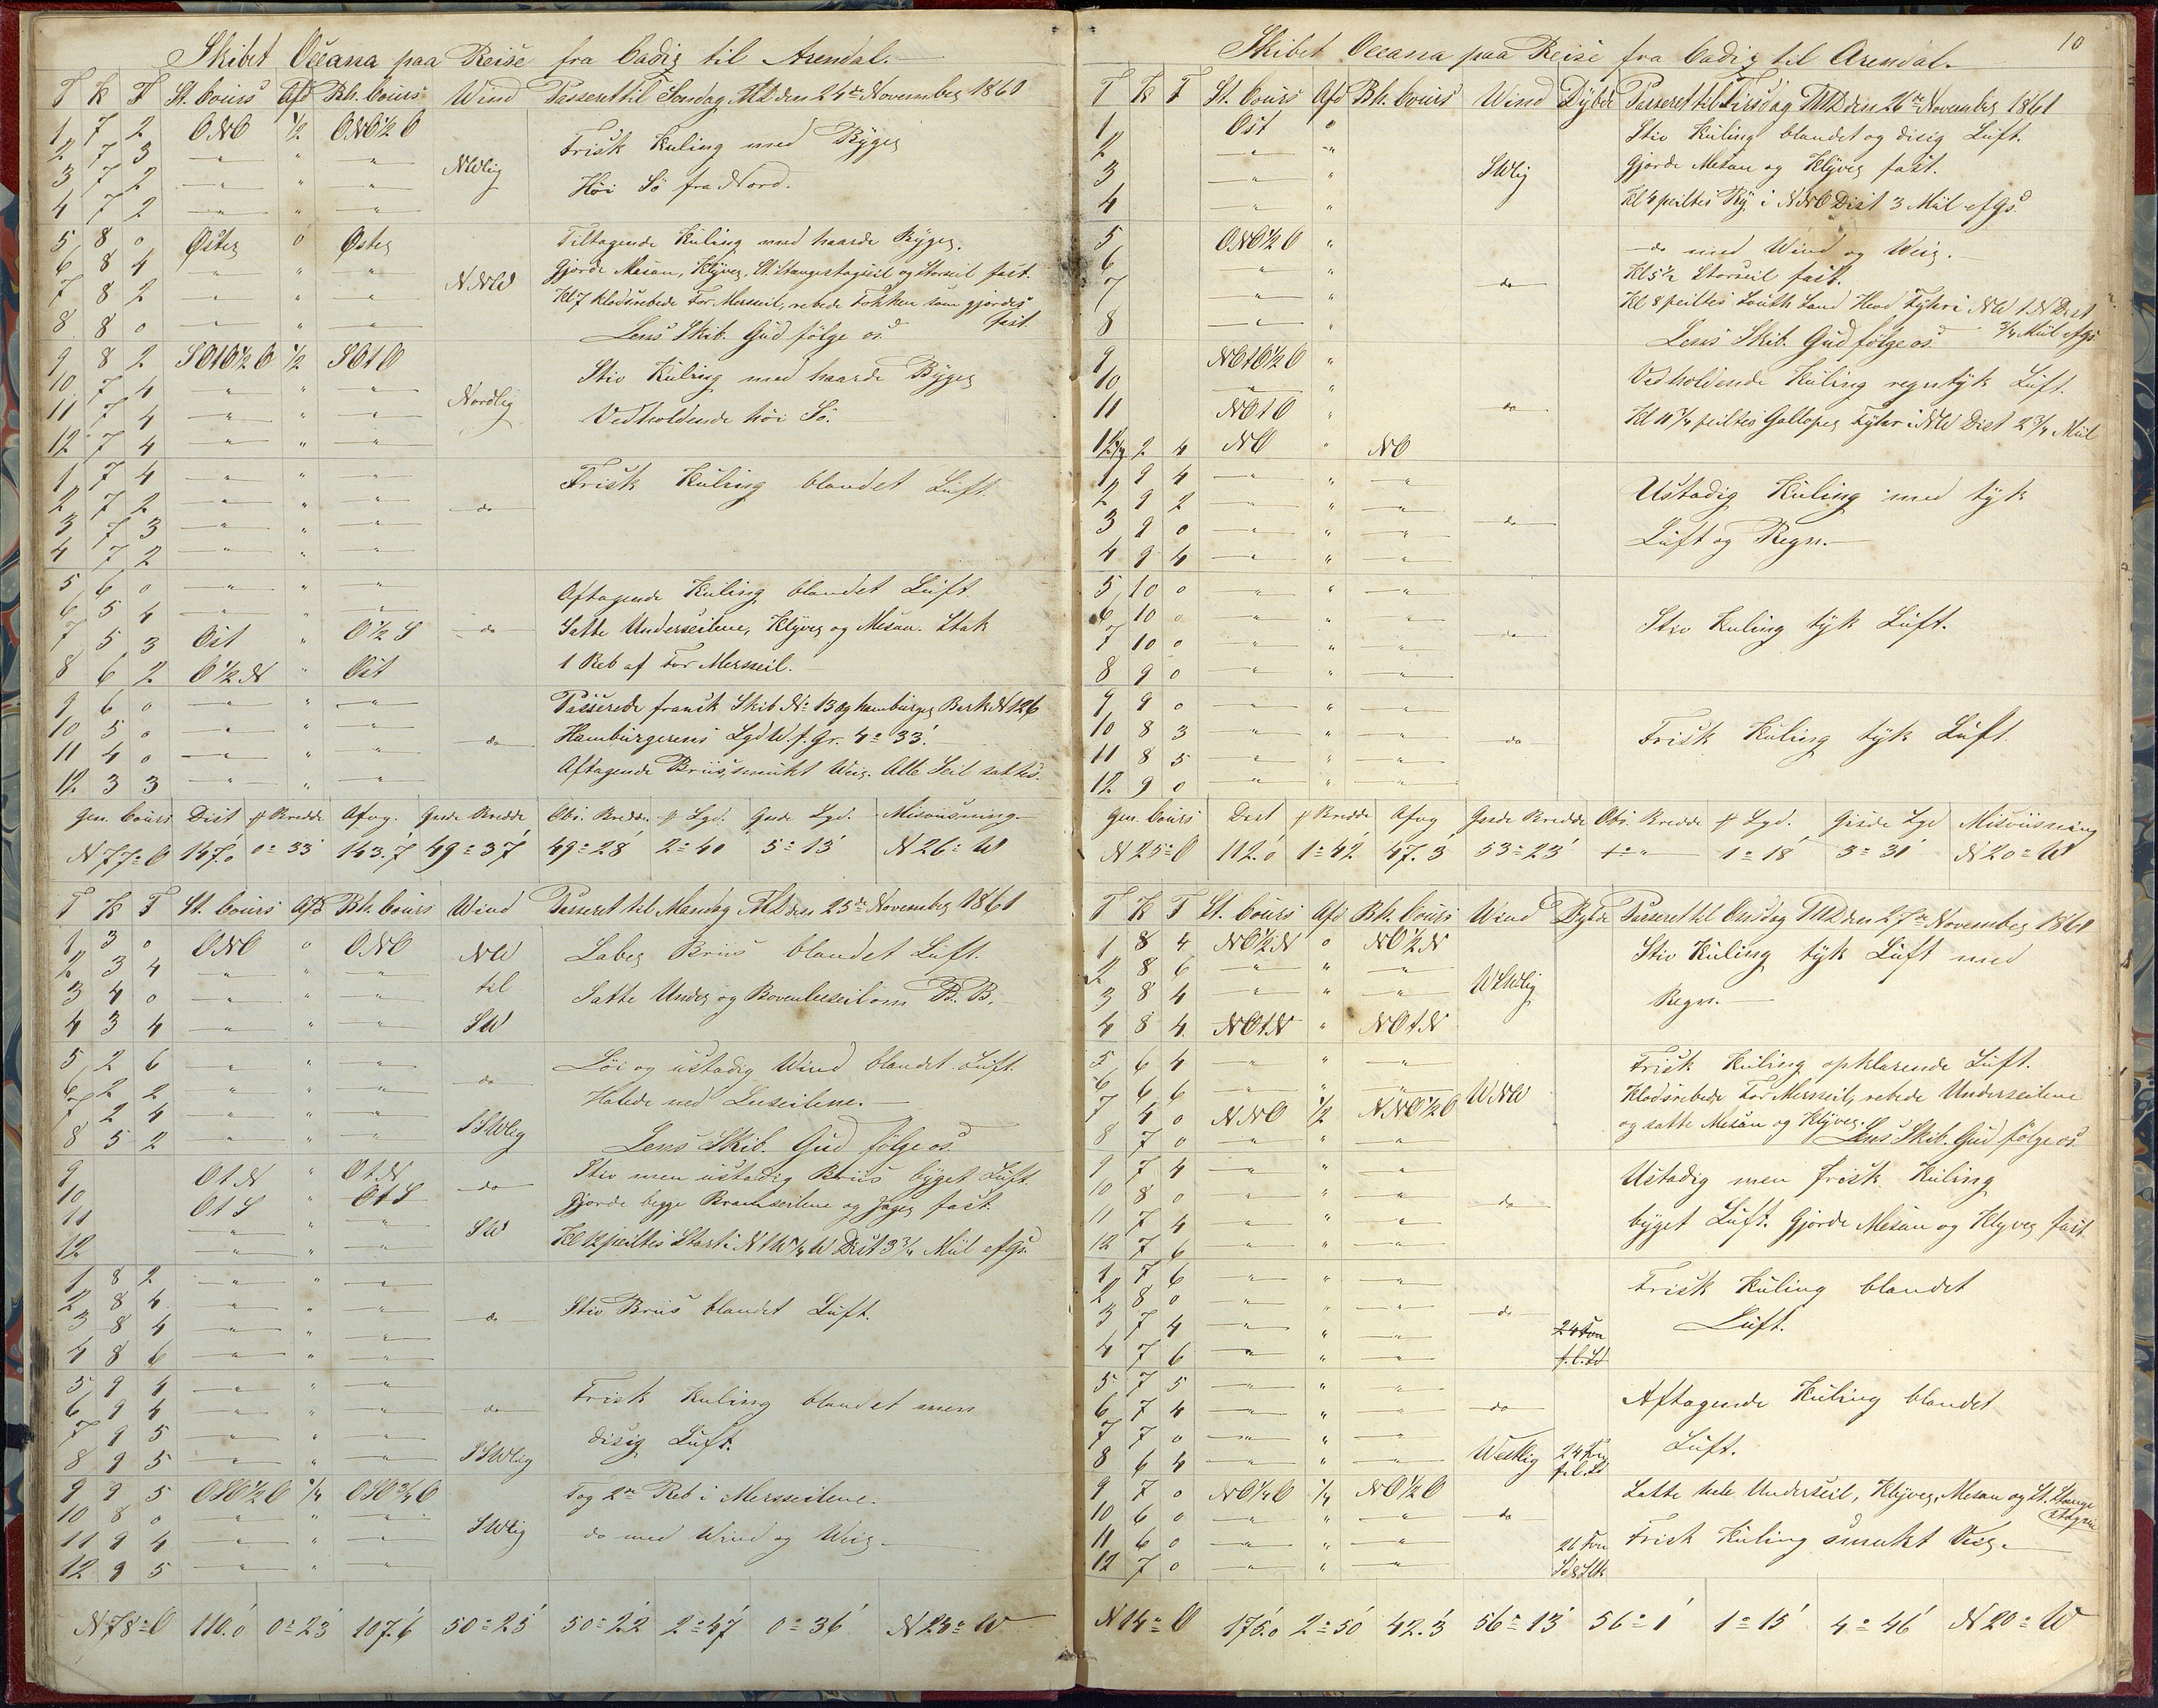 Skibet Oceana paa Reise fra Cadiz til Arendal.
T K F St. Cours Afd Bh. Cours Wind Passeret til Søndag Md den 24de November 1861
1 7 2 ONO ½ ONO½O
2 7 3 " " " Frisk Kuling med Byger
3 7 2 " " " NWlig Høi Sö fra Nord.
4 7 2 " " "
5 8 0 Øster 0 Øster Tiltagende Kuling med haarde Byger.
6 8 4 " " " NNW Gjorde Mesan, Klyver, St. Stangestagseil og Storseil fast.
7 8 2 " " " Kl 7 klodsrebede For Merseil, rebede Fokken som gjordes fast.
8 8 0 " " " Lens Skib. Gud følge os.
9 8 2 SOtO½O ½ SOtO
10 7 4 " " " Stiv Kuling med haarde Byger
11 7 4 " " " Nordlig Vedholdende høi Sö.
12 7 4 " " "
1 7 4 " " " Frisk Kuling blandet Luft
2 7 2 " " " do
3 7 3 " " "
4 7 2 " " "
5 6 0 " " " Aftagende Kuling blandet Luft
6 5 4 " " "
7 5 3 Ost " O½S do Satte Underseilene, Klyver og Mesan. Stak
8 6 2 O½N " Ost 1 Reb af For Merseil.
9 6 0 " " " Passerede fransk Skib No 13 og hamburger Bark N 126
10 5 0 " " " Hamburgerens Lgd W. f. Gr. 4° 33'.
11 4 0 " " " do
12 3 3 " " " Aftagende Briis, smukt Veir. Alle Seil sattes.
Gen. Cours Dist f Bredde Afvg. Gisde Bredde Obs. Bredde f Lgd. Gisde Lgd. Misviisning
N 77° O 147.0 0° 33' 143.7 49° 37' 49° 28' 2° 40 5° 13' N 26° W
T K F St. Cours Afd Bh. Cours Wind Passeret til Mandag Md den 25de November 1861
1 3 0 ONO 0 ONO NW Laber Briis blandet Luft.
2 3 4 " " "
3 4 0 " " " til Satte Under og Bovenleeseil om B. B.
4 3 4 " " " SW
5 2 6 " " " Löi og ustadig Wind blandet Luft
6 2 2 " " " do
7 2 4 " " " Halede ned Leeseilene.
8 5 2 " " " SSWlig Lens Skib. Gud følge os.
9 OtN " OtN do Stiv men ustadig Briis byget Luft.
10 OtS " OtS Gjorde begge Bramseilene og Jager fast.
11 " " " SW
12 " " " Kl 12 peiltes Start i NtW¼W Dist 3¾ Mül efGs.
1 8 2 " " "
2 8 4 " " " do Stiv Briis blandet Luft.
3 8 4 " " "
4 8 6 " " "
5 9 4 " " " Frisk Kuling blandet men
6 9 4 " " " do
7 9 5 " " " disig Luft.
8 9 5 " " " SSWlig
9 9 5 OSO½O ¼ OSO¾O Tog 2de Reb i Merseilene.
10 8 0 " " " SWlig
11 9 4 " " " do med Wind og Veir.
12 9 5 " " "
N 78° O 110.0 0° 23' 107.6 50° 25' 50° 22 2° 47' 0° 36' N 23° W
10
Skibet Oceana paa Reise fra Cadiz til Arendal.
T K F St. Cours Afd Bh. Cours Wind Dybde Passeret til Tirsdag Md den 26de November 1861
1 Ost 0 Stiv Kuling blandet og disig Luft.
2 " " Gjorde Mesan og Klyver fast.
3 " " SWlig
4 " " Kl 4 peiltes Ry. i NNO Dist 3 Mül efGs.
5 ONO½O " do med Wind og Veir.
6 " " Kl 5½ Storseil fast.
7 " " do Kl 8 peiltes South Land Head Fyhr i NWtN Dist
8 " " ¾ Mül efGs. Lens Skib. Gud følge os.
9 NOtO½O " Vedholdende Kuling regntyk Luft.
10 " "
11 NOtO " do Kl 11¾ peiltes Galloper Fyhr i NW Dist 2¾ Mül
12 2 4 NO " NO
1 9 4 " " " Ustadig Kuling med tyk
2 9 2 " " "
3 9 0 " " " do Luft og Regn.
4 9 4 " " "
5 10 0 " " "
6 10 0 " " " Stiv Kuling tyk Luft.
7 10 0 " " " do
8 9 0 " " "
9 9 0 " " "
10 8 3 " " " do Frisk Kuling tyk Luft
11 8 5 " " "
12 9 0 " " "
Gen. Cours Dist f Bredde Afvg Gisde Bredde Obs. Bredde f Lgd. Gisde Lgd Misviisning
N 25° O 112.0 1° 42' 47.3 53° 23' 1° 18' 3° 31' N 20° W
T K F St. Cours Afd Bh. Cours Wind Dybde Passeret til Onsdag Md den 27de November 1861
1 8 4 NO½N 0 NO½N Stiv Kuling tyk Luft med
2 8 6 " " "
3 8 4 " " " WSWlig Regn.
4 8 4 NOtN " NOtN
5 6 4 " " " Frisk Kuling opklarende Luft.
6 6 6 " " " WNW Klodsrebede For Merseil, rebede Underseilene
7 4 0 NNO ½ NNO½O og satte Mesan og Klyver.
8 7 0 " " " Lens Skib. Gud følge os.
9 7 4 " " " Ustadig men frisk Kuling
10 8 0 " " " do
11 7 4 " " " byget Luft. Gjorde Mesan og Klyver fast
12 7 6 " " "
1 7 6 " " " Frisk Kuling blandet
2 8 0 " " " do
3 7 4 " " " 24 Fvn Luft.
4 7 6 " " " f. l. Sd
5 7 5 " " " Aftagende Kuling blandet
6 7 4 " " " do
7 7 0 " " " Luft.
8 6 4 " " " Westlig 24 Fvn f. l. Sd
9 7 0 NO¼O ¼ NO½O Satte hele Underseil, Klyver, Mesan og St. Stange
10 6 0 " " " do stagseil
11 6 0 " " " 26 Fvn Frisk Kuling smukt Veir.
12 7 0 " " "
N 14° O 175.0 2° 50' 42.3 56° 13' 56° 1' 1° 15' 4° 46' N 20° W